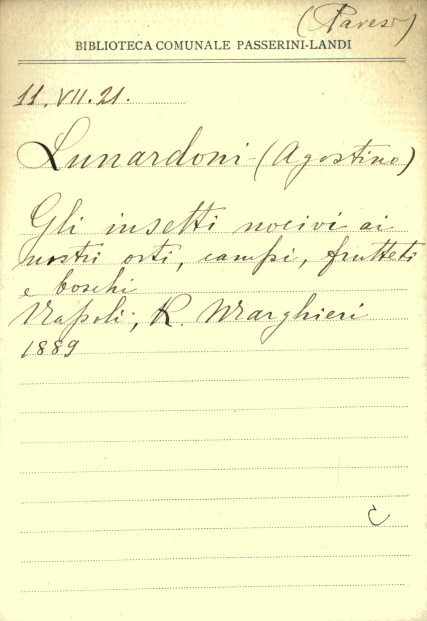 (Pavesi)
BIBLIOTECA COMUNALE PASSERINI-LANDI
11.VII.21.
Lunardoni (Agostino)
Gli insetti nocivi ai
nostri orti, campi, frutteti
e boschi
Napoli, R. Marghieri
1889
C